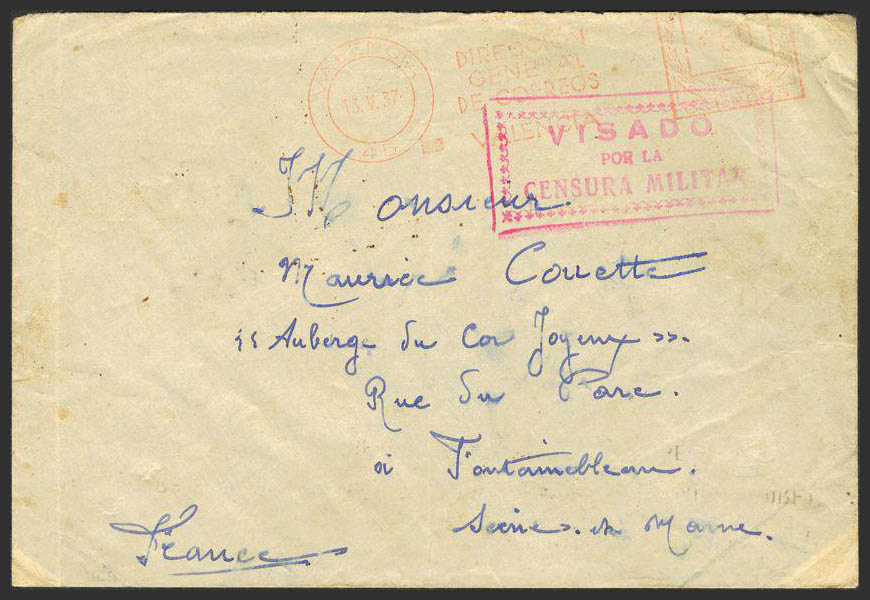 VALENCIA
13.V.37
45
DIRECCION
GENERAL
DE CORREOS
VALENCIA
*80
VISADO
POR LA
CENSURA MILITAR
Monsieur.
Maurice Couette
"Auberge du Cor Joyeux".
Rue du Parc.
à Fontainebleau.
Seine. et Marne.
France